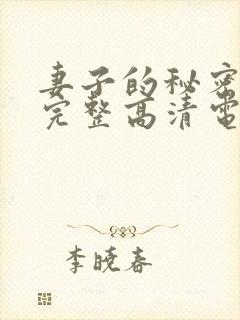 妻子的秘密
完整高清電
李曉春